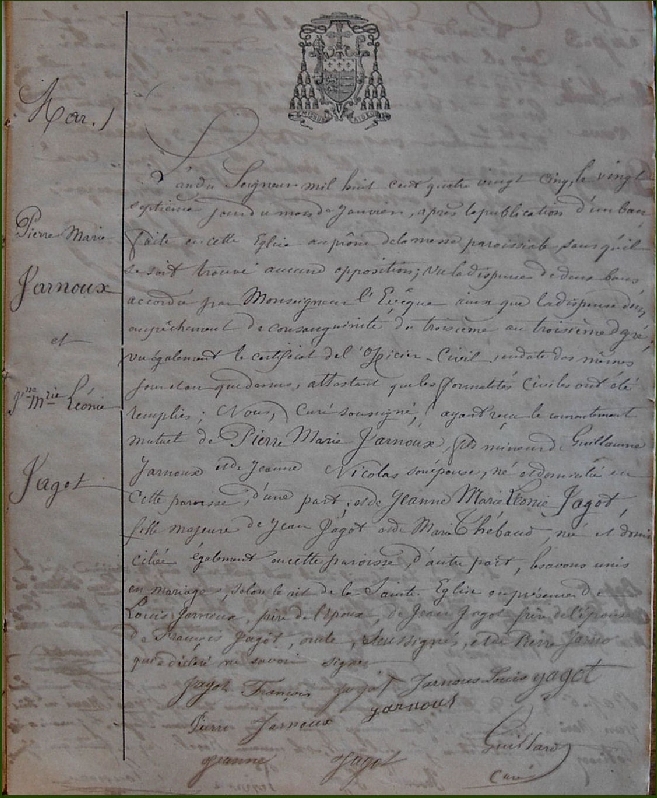 Mar.
Pierre Marie
Jarnoux
et
Jne Mrie Léonie
Jagot
L'an du Seigneur mil huit cent quatre vingt cinq, le vingt
septième jour du mois de Janvier, après la publication d'un ban
faite en cette Eglise au prône de la messe paroissiale sans qu'il
se soit trouvé aucune opposition; vu la dispense de deux bans
accordée par Monseigneur l'Evêque ainsi que la dispense d'un
empêchement de consanguinité du troisième au troisième degré,
vu également le certificat de l'Officier-Civil, en date des mêmes
jour et an que dessus, attestant que les formalités civiles ont été
remplies; Nous, Curé soussigné, ayant reçu le consentement
mutuel de Pierre Marie Jarnoux, fils mineur de Guillaume
Jarnoux et de Jeanne Nicolas son épouse, né et domicilié en
cette paroisse, d'une part; et de Jeanne Marie Léonie Jagot,
fille majeure de Jean Jagot et de Marie Thébaud, née et domi
ciliée également en cette paroisse d'autre part, les avons unis
en mariage, selon le rit de la Sainte Eglise en présence de
Louis Jarnoux, père de l'époux, de Jean Jagot frère de l'épouse
de François Jagot, oncle, soussignés, et de Pierre
qui a déclaré ne savoir signer
Jagot François Jagot Jarnoux Louis Jagot
Pierre Jarnoux Jarnoux
Jeanne Jagot
Guillard
Curé